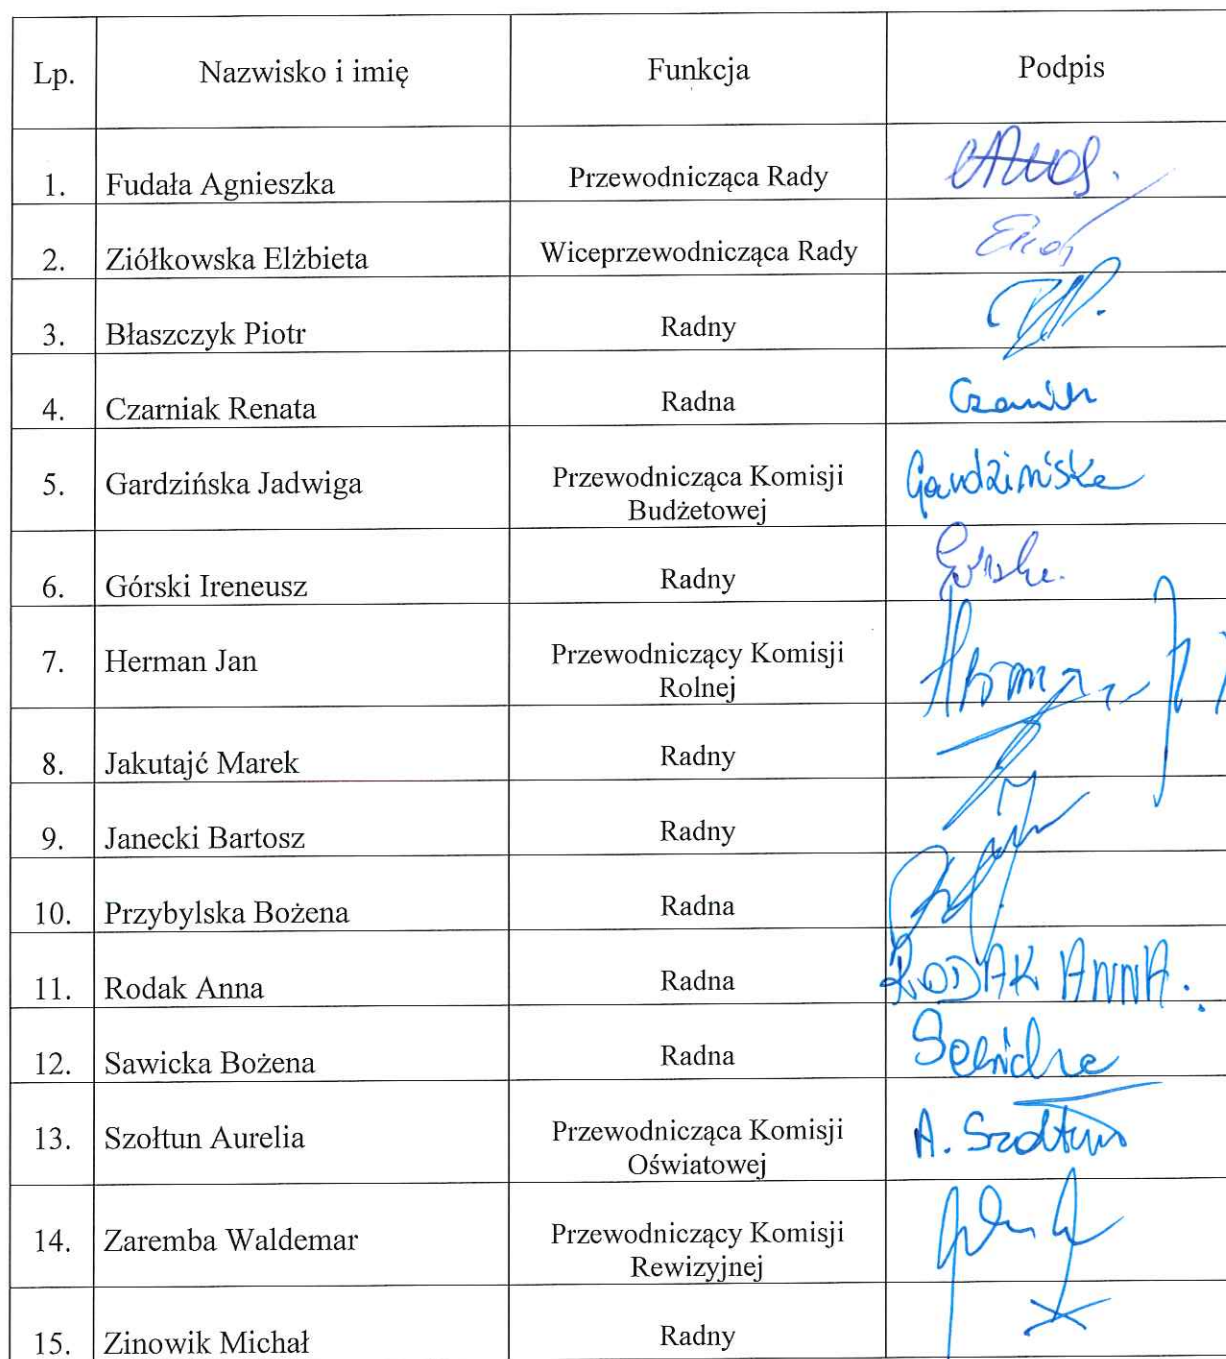 Lp. Nazwisko i imię Funkcja Podpis
1. Fudała Agnieszka Przewodnicząca Rady
2. Ziółkowska Elżbieta Wiceprzewodnicząca Rady
3. Błaszczyk Piotr Radny
4. Czarniak Renata Radna
5. Gardzińska Jadwiga Przewodnicząca Komisji Gardzińska
Budżetowej
6. Górski Ireneusz Radny
7. Herman Jan Przewodniczący Komisji
Rolnej
8. Jakutajć Marek Radny
9. Janecki Bartosz Radny
10. Przybylska Bożena Radna
11. Rodak Anna Radna RODAK ANNA.
12. Sawicka Bożena Radna
13. Szołtun Aurelia Przewodnicząca Komisji A. Szołtun
Oświatowej
14. Zaremba Waldemar Przewodniczący Komisji
Rewizyjnej
15. Zinowik Michał Radny